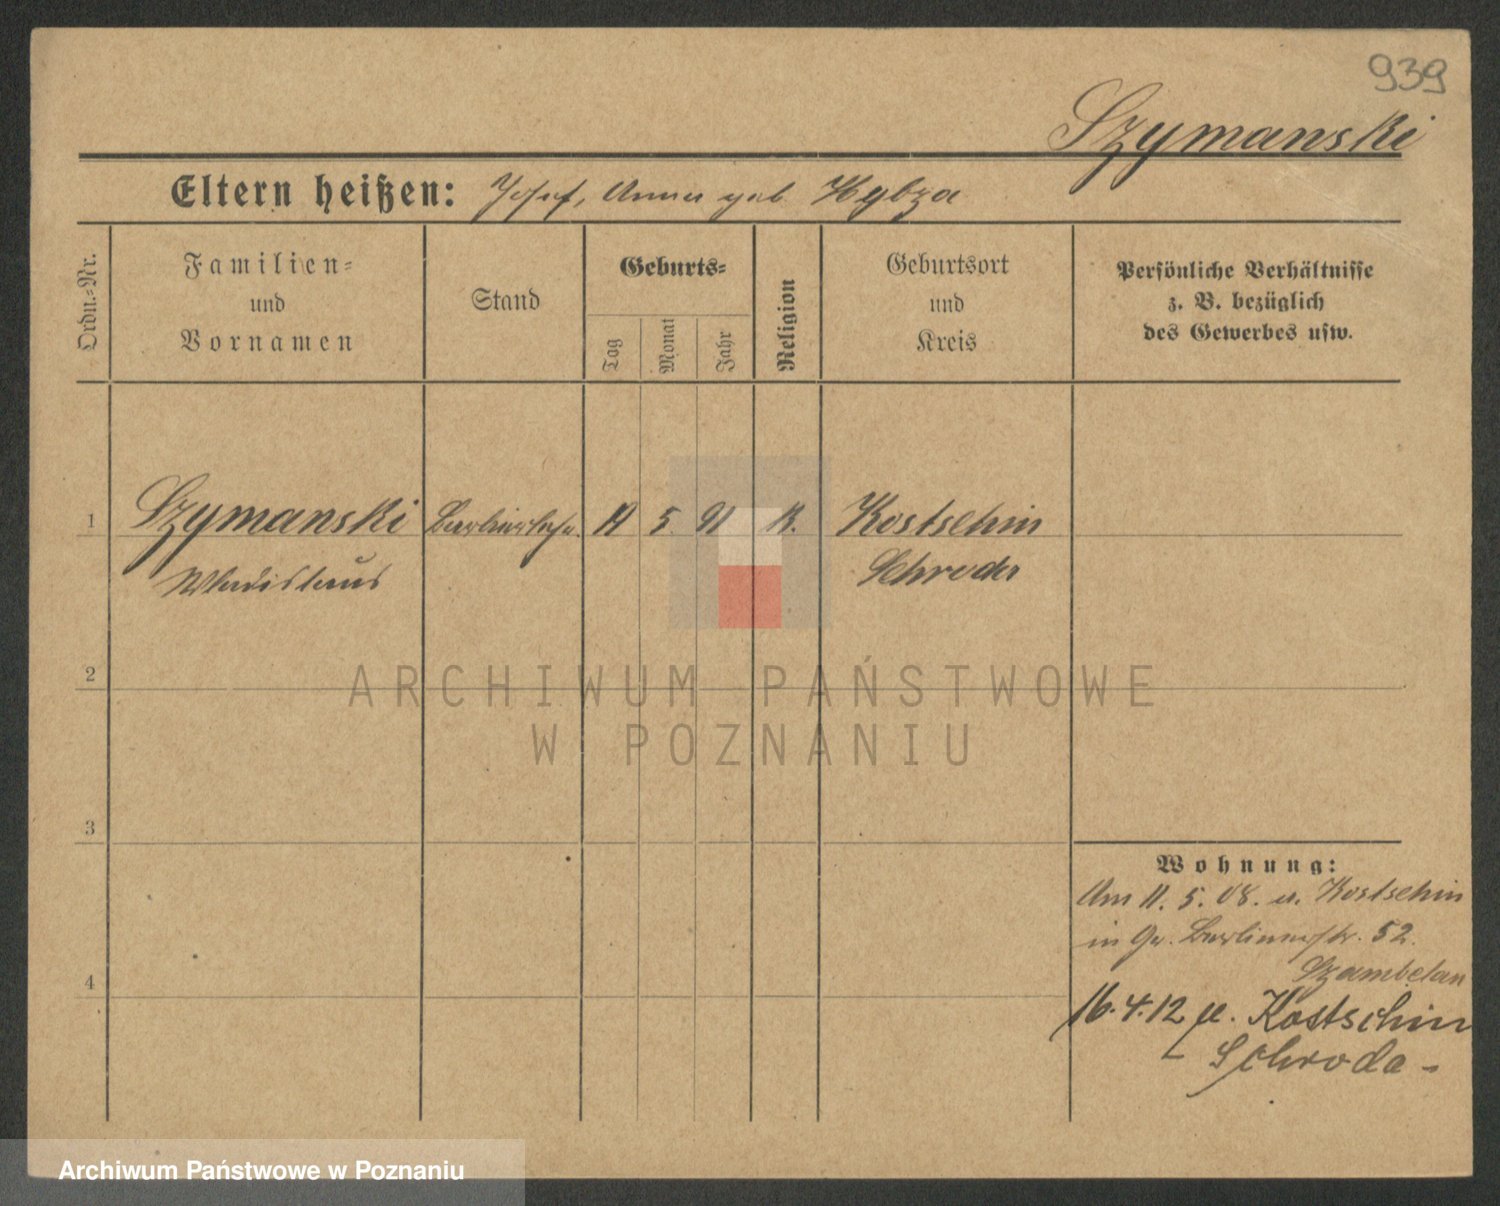 939
Szymanski
Eltern heißen: Josef, Anna geb. Hybza
Ordn.-Nr.
Familien-
und
Vornamen
Stand
Geburts-
Tag
Monat
Jahr
Religion
Geburtsort
und
Kreis
Persönliche Verhältnisse
z. B. bezüglich
des Gewerbes usw.
1 Szymanski 5. 91 K. Kostschin
Wladislaus Schroda
2
ARCHIWUM PAŃSTWOWE
W POZNANIU
3
Wohnung:
Am 11. 5. 08. Kostschin
in Gr. Berlinerstr. 52.
Szambelan
4
16.4.12 Kostschin
Schroda -
Archiwum Państwowe w Poznaniu